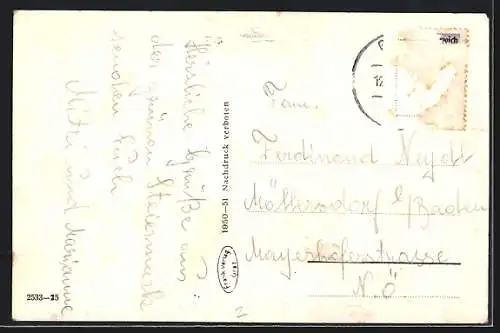 Herzliche Grüße aus
der grünen Steiermark
senden Euch
Mitzi und Marianne
1950—51 Nachdruck verboten
2533—25
Fam.
Ferdinand Neydt
Möllersdorf b/Baden
Mayerhoferstrasse
N.Ö